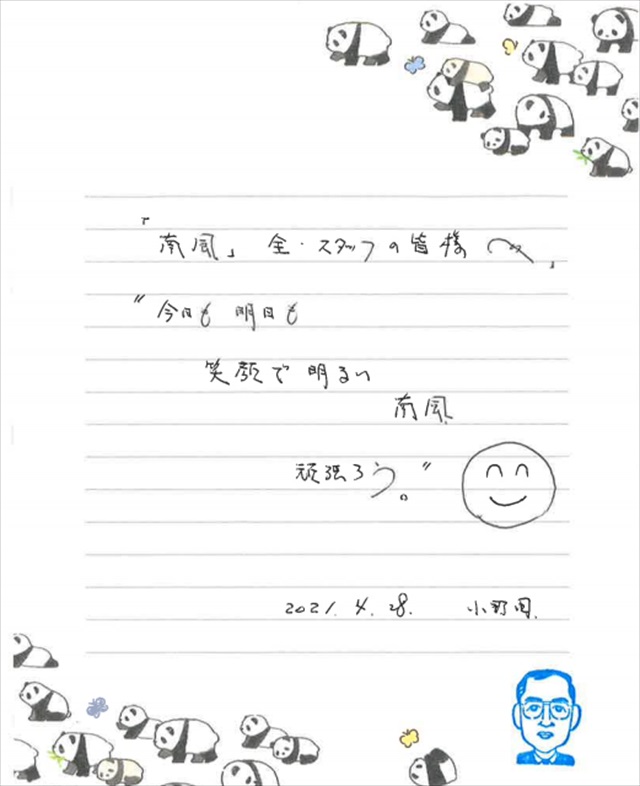 『南風』全・スタッフの皆様へ、
"今日も 明日も
笑顔で 明るい
南風
頑張ろう。"
2021.4.28. 小野田